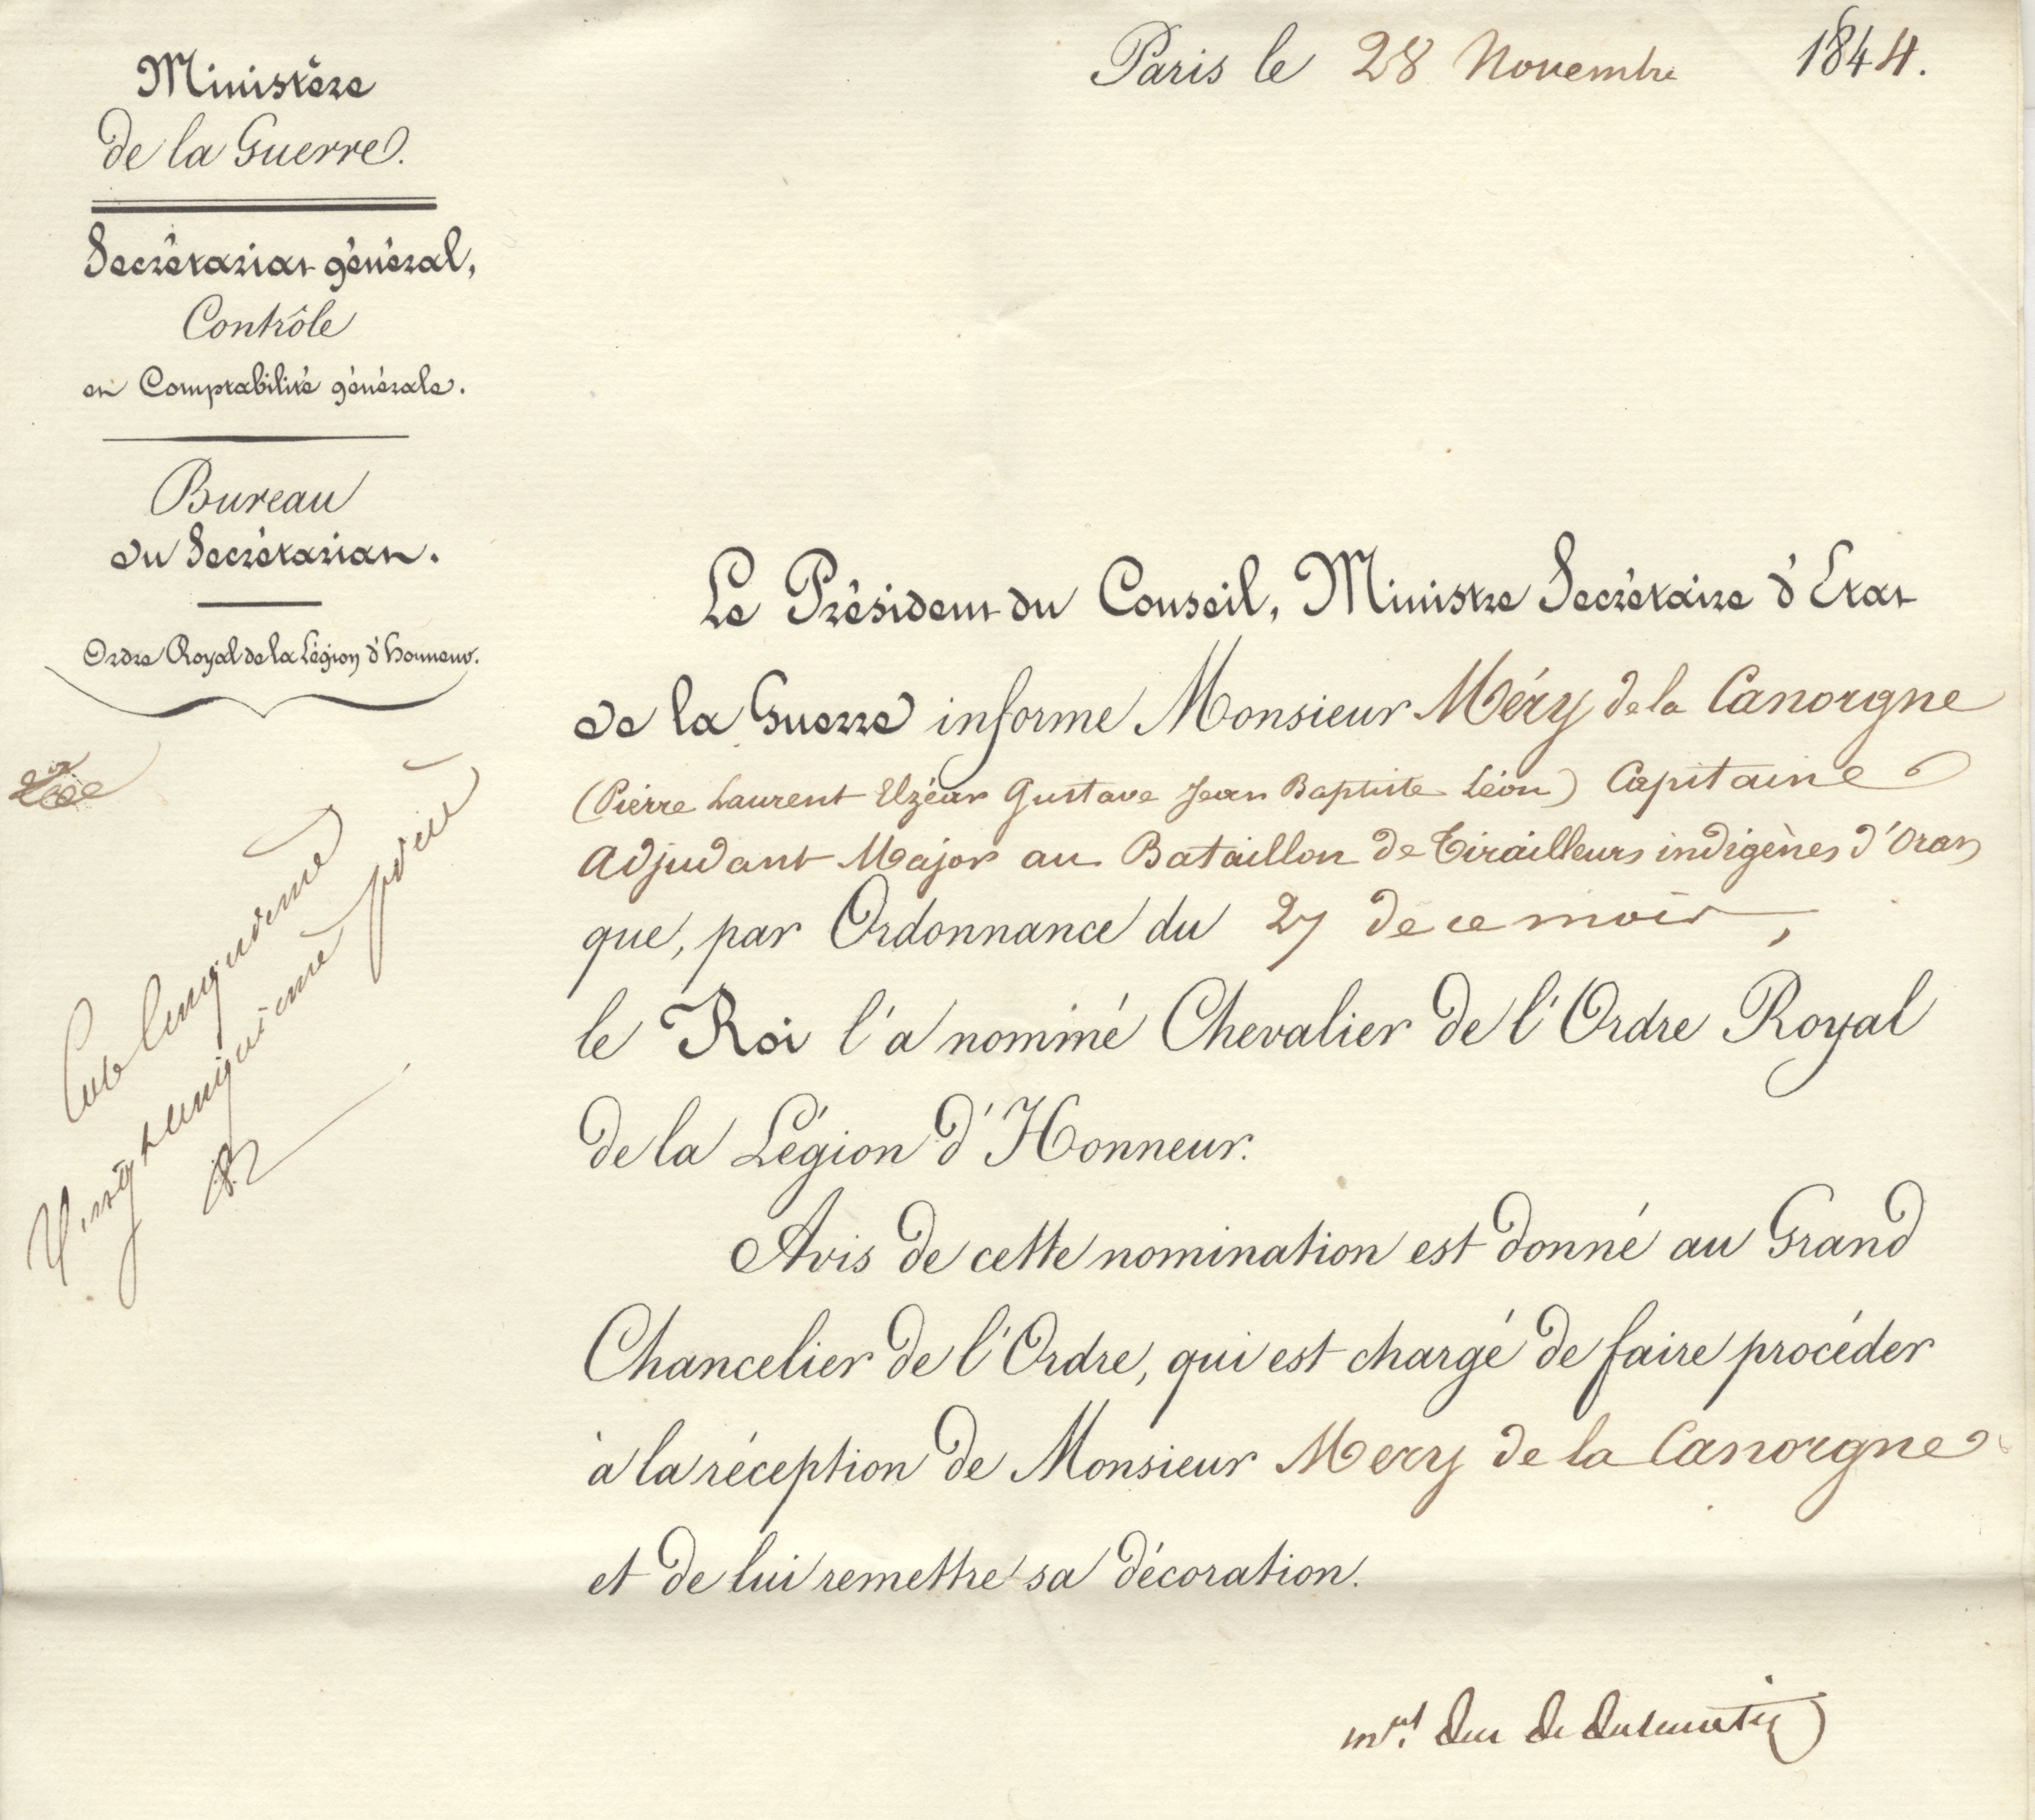 Paris le 28 Novembre 1844.
Ministère
de la Guerre.
Secrétariat général,
Contrôle
et Comptabilité générale.
Bureau
du Secrétariat.
Ordre Royal de la Légion d'honneur.
Le Président du Conseil, Ministre Secrétaire d'Etat
de la Guerre informe Monsieur Méry de la Canorgne
(Pierre Laurent Elzéar Gustave Jean Baptiste Léon) Capitaine
Adjudant Major au Bataillon de Tirailleurs indigènes d'Oran
que, par Ordonnance du 27 de ce mois,
le Roi l'a nommé Chevalier de l'Ordre Royal
de la Légion d'Honneur.
Avis de cette nomination est donné au Grand
Chancelier de l'Ordre, qui est chargé de faire procéder
à la réception de Monsieur Mery de la Canorgne
et de lui remettre sa décoration.
Mal. Duc de Dalmatie